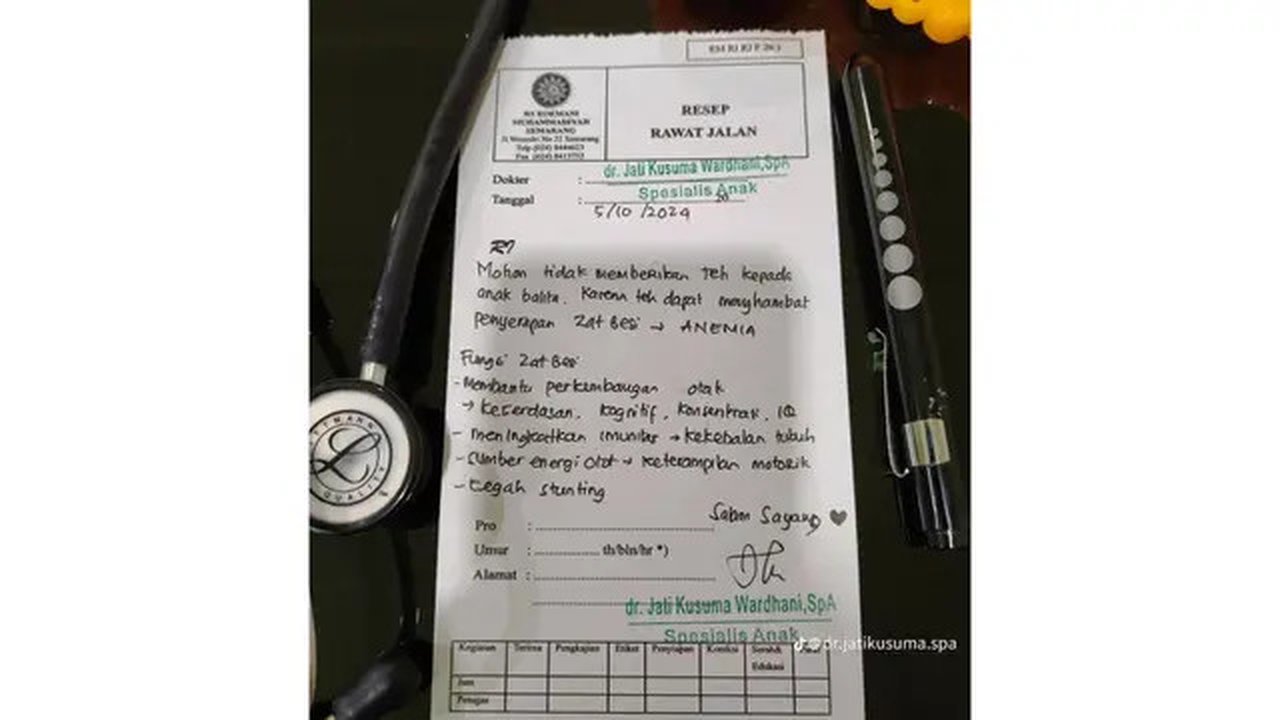 RESEP
RAWAT JALAN
MUHAMMADIYAH
SEMARANG
Dokter :
dr. Jati Kusuma Wardhani,SpA
Spesialis Anak
Tanggal :
20
5/10/2024
R/
Mohon tidak memberikan Teh kepada
anak balita. Karena teh dapat menghambat
penyerapan Zat Besi → ANEMIA
Fungsi Zat Besi
- Membantu perkembangan otak
→ kecerdasan, kognitif, konsentrasi, IQ
- meningkatkan imunitas → kekebalan tubuh
- Sumber energi otot → keterampilan motorik
- Cegah stunting
Salam Sayang ♥
Pro :
Umur : th/bln/hr *)
Alamat :
dr. Jati Kusuma Wardhani,SpA
Spesialis Anak
Kegiatan Terima Pengkajian Etiket Penyiapan Koreksi Serah& Edukasi
Jam
Petugas
LITTMANN
QUALITY
@dr.jatikusuma.spa